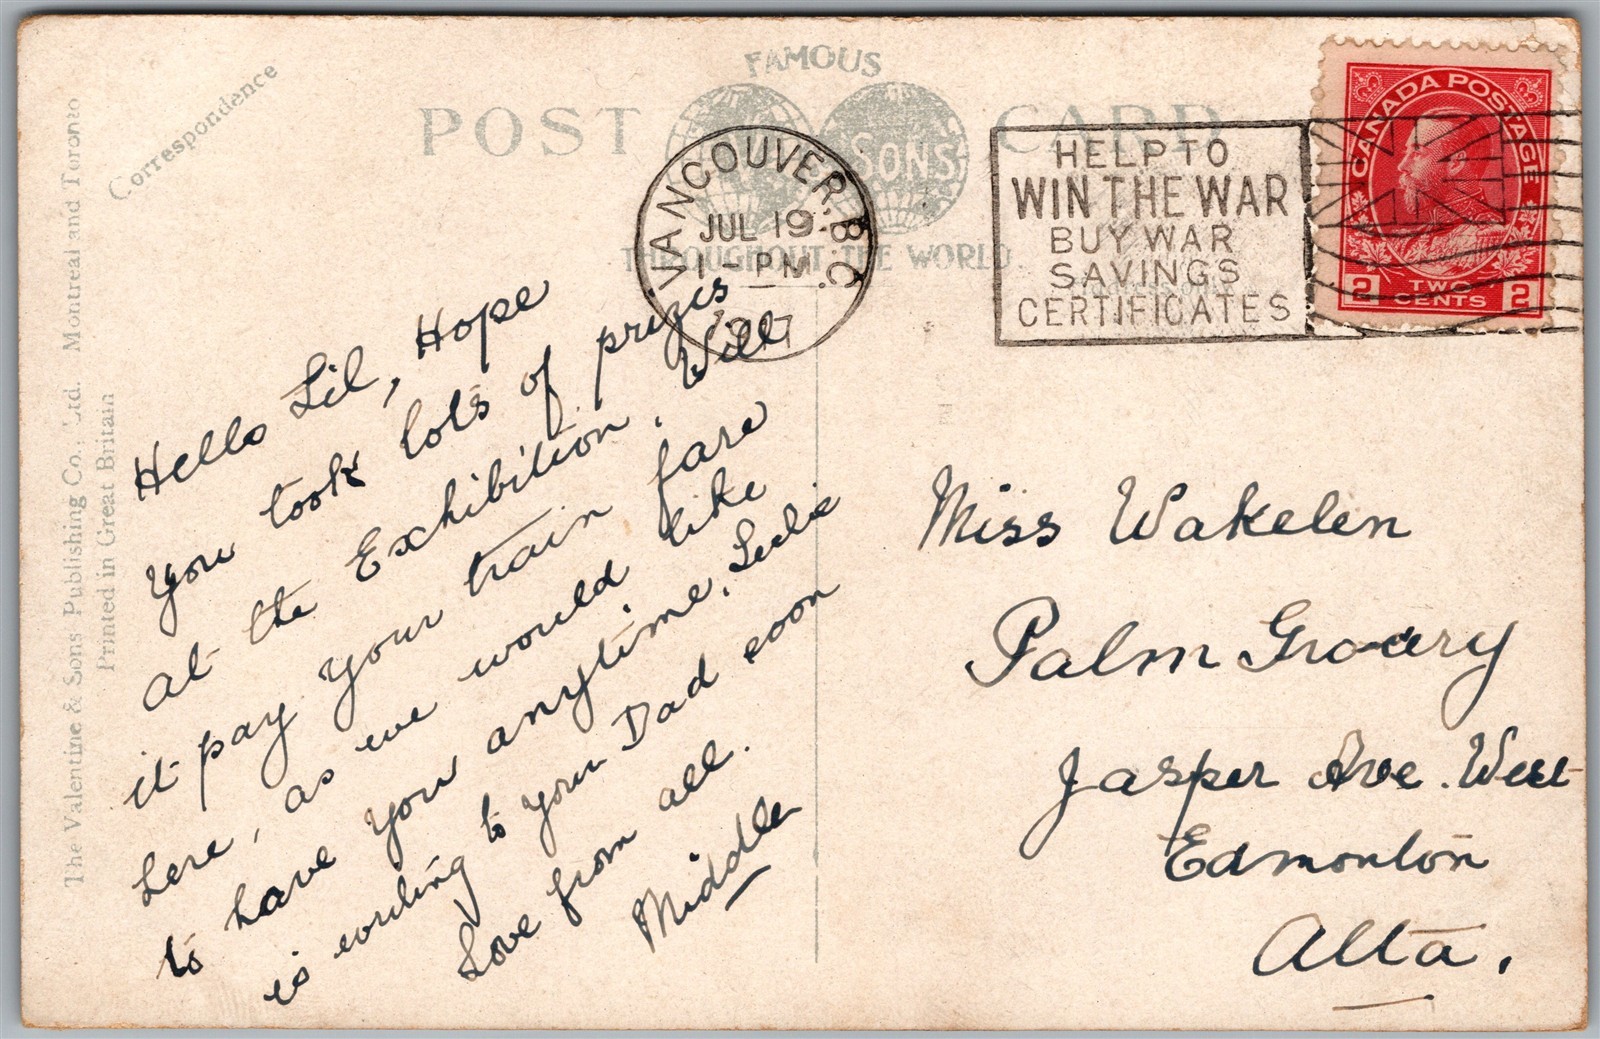 Correspondence
The Valentine & Sons Publishing Co., Ltd. Montreal and Toronto
Printed in Great Britain
FAMOUS
POST CARD
SONS
THROUGHOUT THE WORLD
VANCOUVER, B.C.
JUL 19
1 - PM
HELP TO
WIN THE WAR
BUY WAR
SAVINGS
CERTIFICATES
CANADA POSTAGE
2 TWO CENTS 2
Hello Lil, Hope
you took lots of prizes
at the Exhibition. Will
it pay your train fare
here, as we would like
to have you anytime. Leslie
is writing to your Dad soon
Love from all.
Middler
Miss Wakelen
Palm Grocery
Jasper Ave. West
Edmonton
Alta.